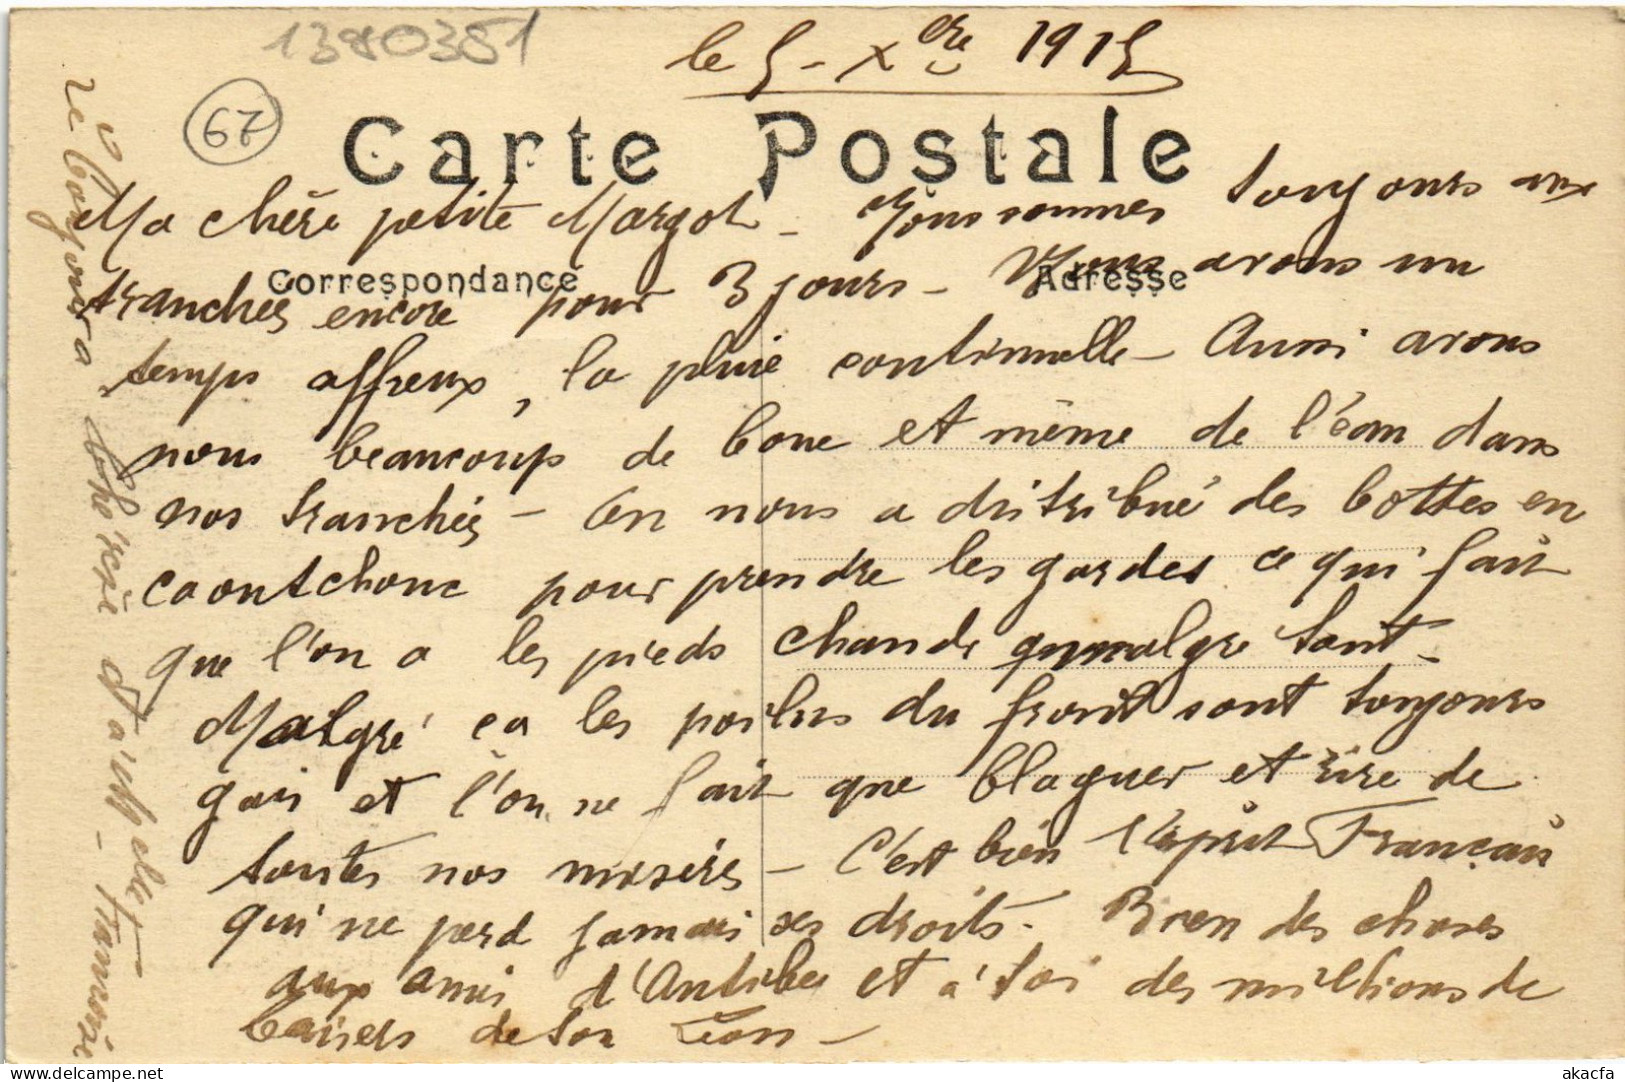 1380351
le 5 - Xbre 1915
67
Carte Postale
Ma chère petite Margot - Nous sommes toujours aux
Correspondance
Adresse
tranchés encore pour 3 jours - Nous avons un
temps affreux, la pluie continuelle - Aussi avons
nous beaucoup de boue et même de l'eau dans
nos tranchés - On nous a distribué des bottes en
caoutchouc pour prendre les gardes ce qui fait
que l'on a les pieds chauds malgre tout -
Malgré ca les poilus du front sont toujours
gais et l'on ne fait que blaguer et rire de
toutes nos misères - C'est bien l'esprit Français
qui ne perd jamais ses droits. Bien des choses
aux amis d'Antibes et a toi des millions de
baisers de ton Léon -
toujours
akacfa
delcampe.net